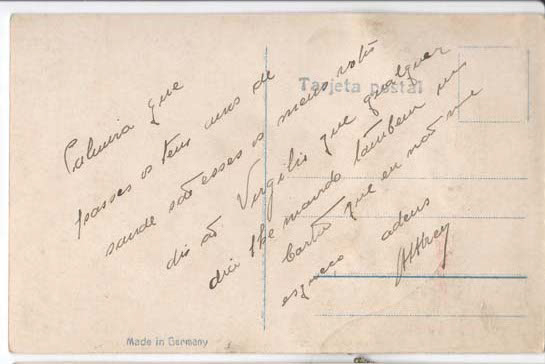 Tarjeta postal
Palmira que
passes os teus anos de
saude são esses os meus votos
diz ao Virgilio que qualquer
dia lhe mando tambem um
cartão que eu não me
esqueco adeus
Made in Germany